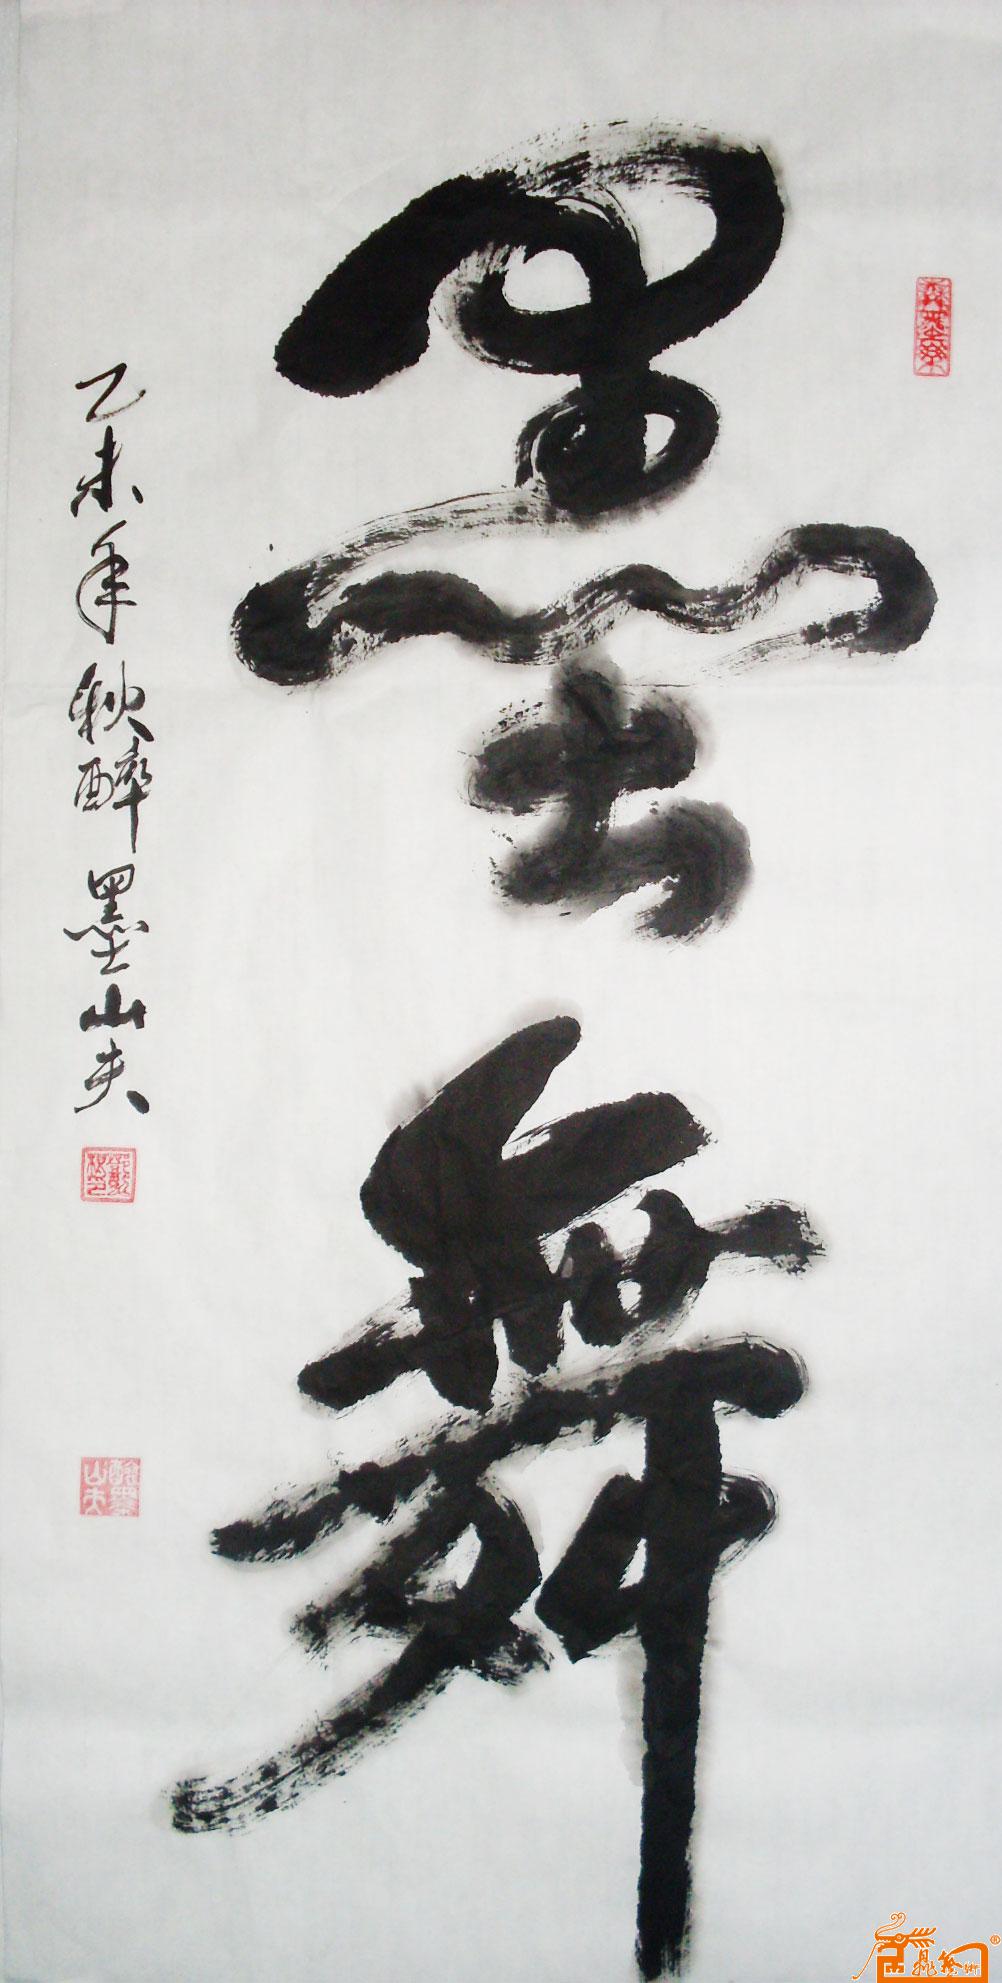 墨舞
乙未年秋醉墨山夫
醉墨山夫